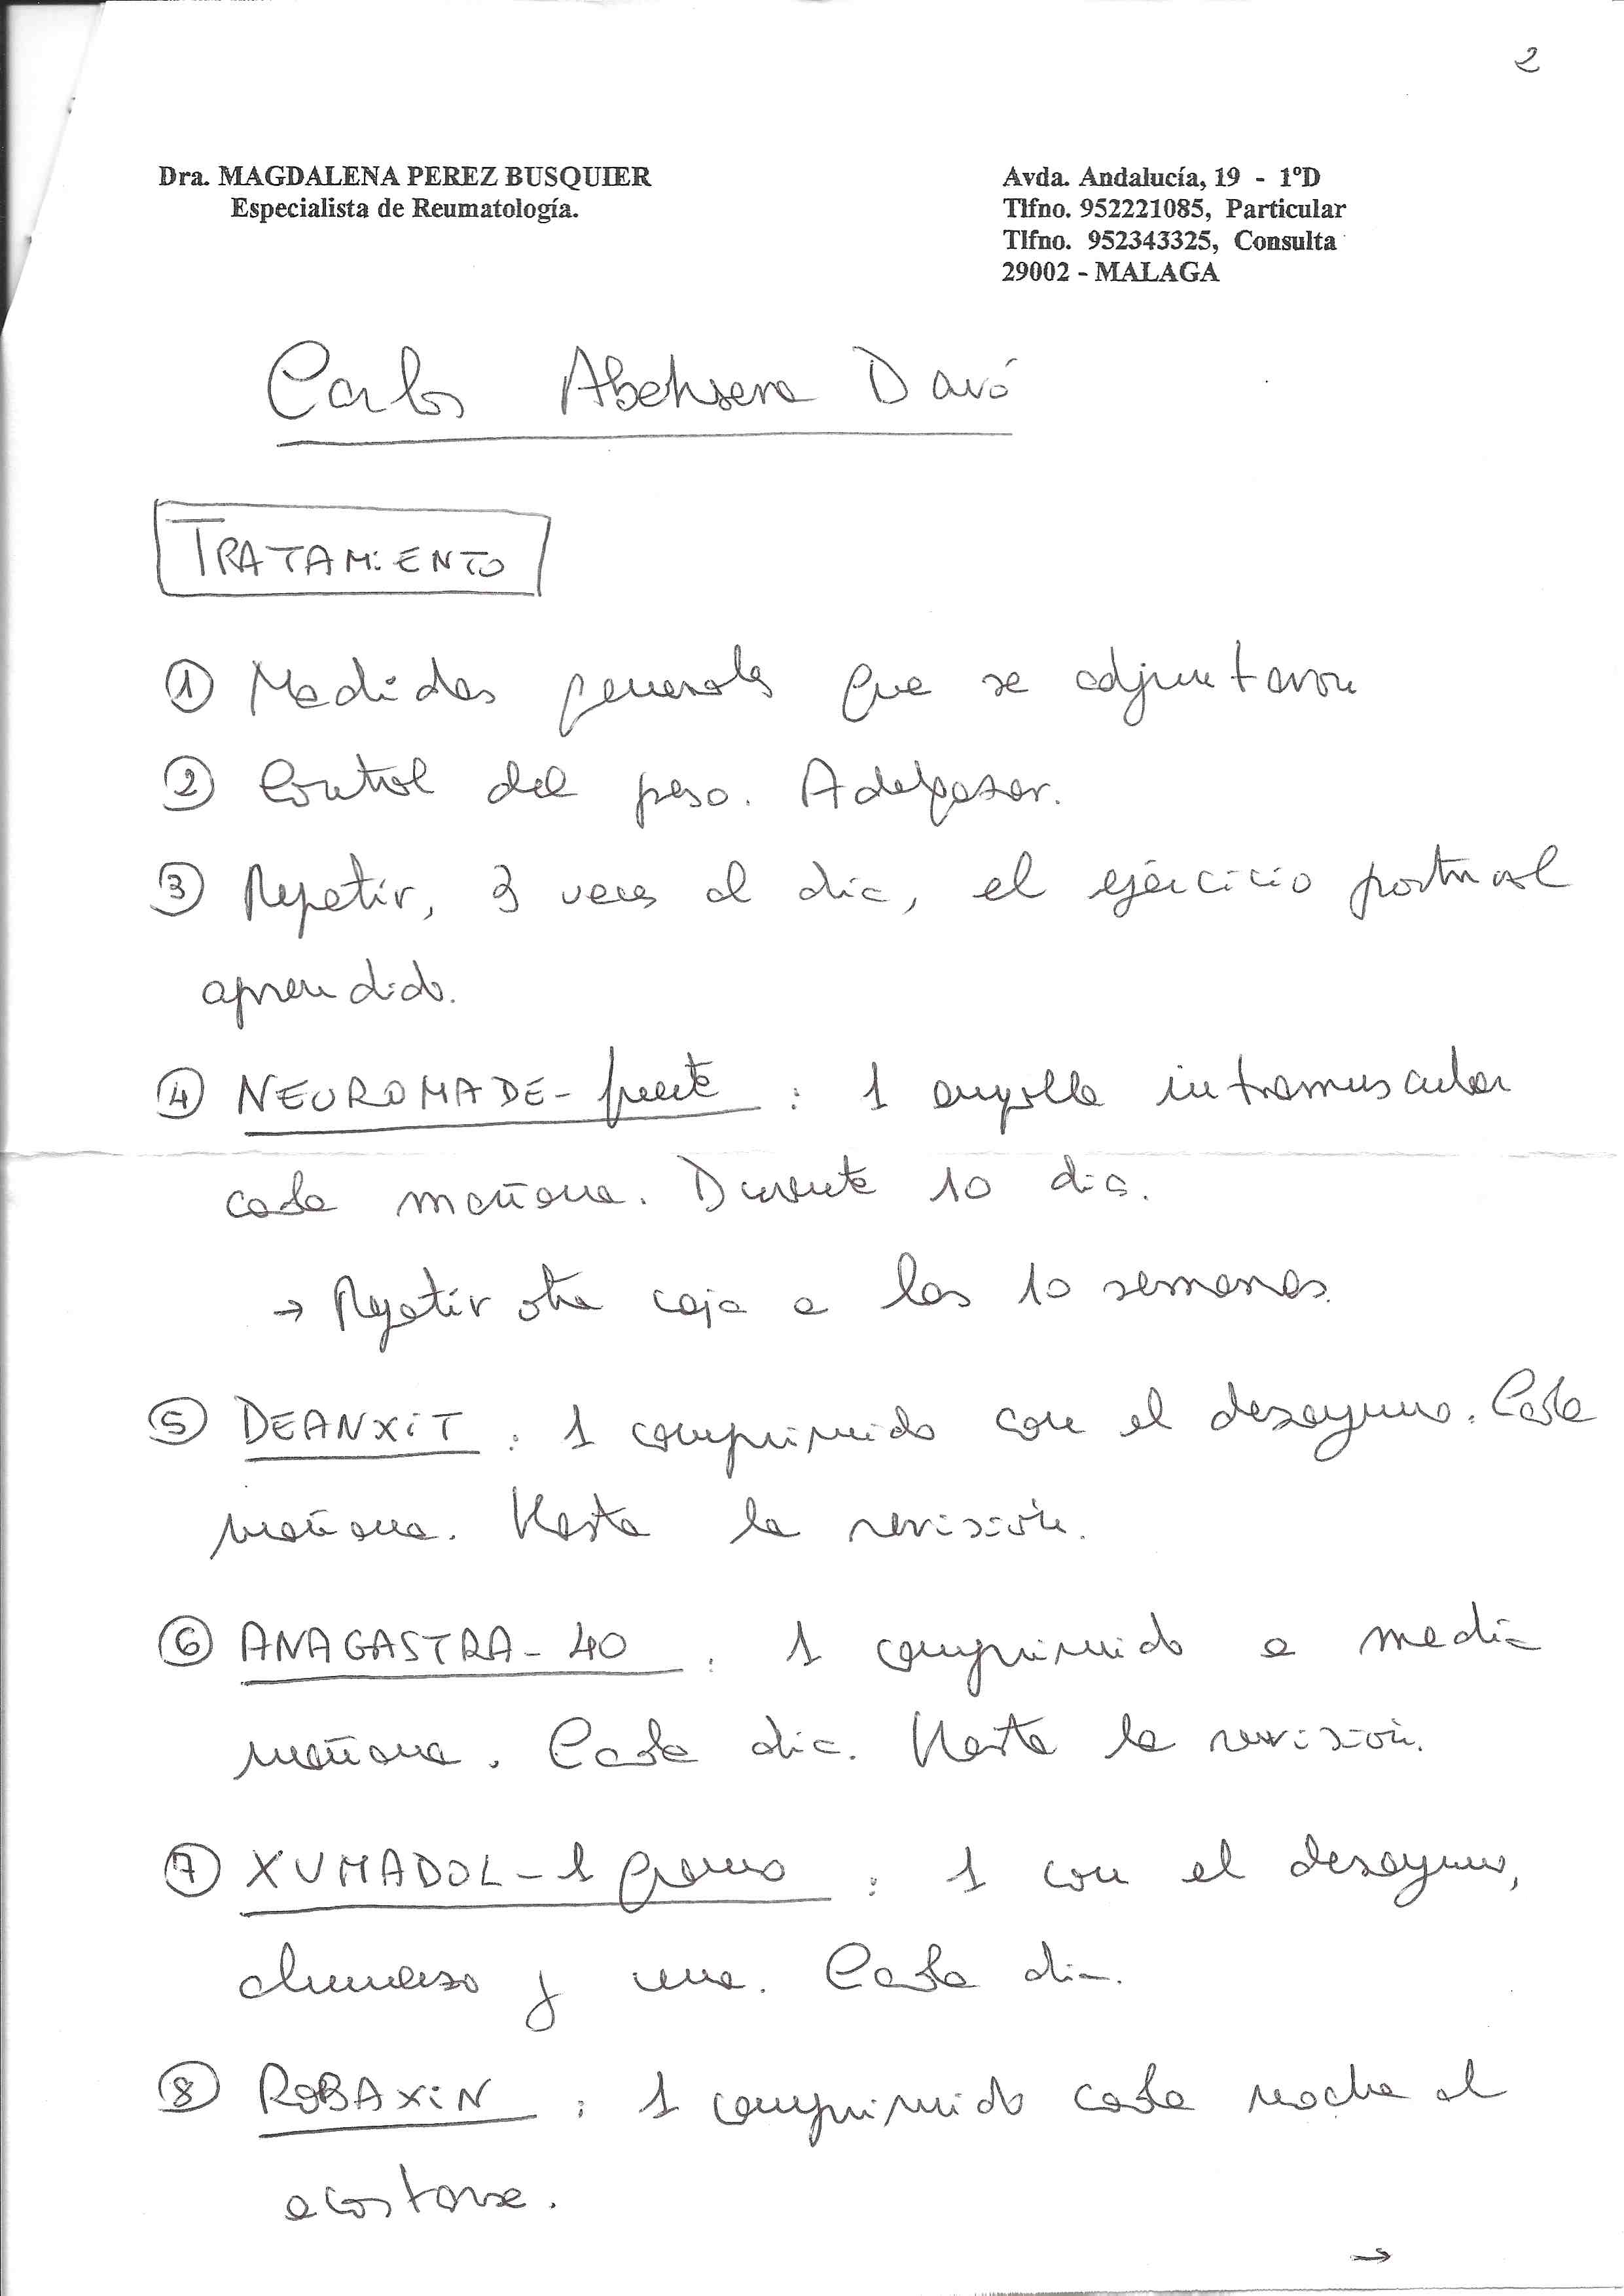 2
Dra. MAGDALENA PEREZ BUSQUIER
Especialista de Reumatología.
Avda. Andalucía, 19 - 1ºD
Tlfno. 952221085, Particular
Tlfno. 952343325, Consulta
29002 - MALAGA
Carlos Abehsera Davó
TRATAMiENTO
① Medidas generales que se adjuntaron
② Control del peso. Adelgazar.
③ Repetir, 3 veces al día, el ejercicio postural
aprendido.
④ NEUROMADE-fuerte : 1 ampolla intramuscular
cada mañana. Durante 10 días.
→ Repetir otra caja a las 10 semanas.
⑤ DEANXiT : 1 comprimido con el desayuno. Cada
mañana. Hasta la revisión.
⑥ ANAGASTRA-40 : 1 comprimido a media
mañana. Cada día. Hasta la revisión.
⑦ XUMADOL-1 gramo : 1 con el desayuno,
almuerzo y cena. Cada día.
⑧ ROBAXiN : 1 comprimido cada noche al
acostarse.
→